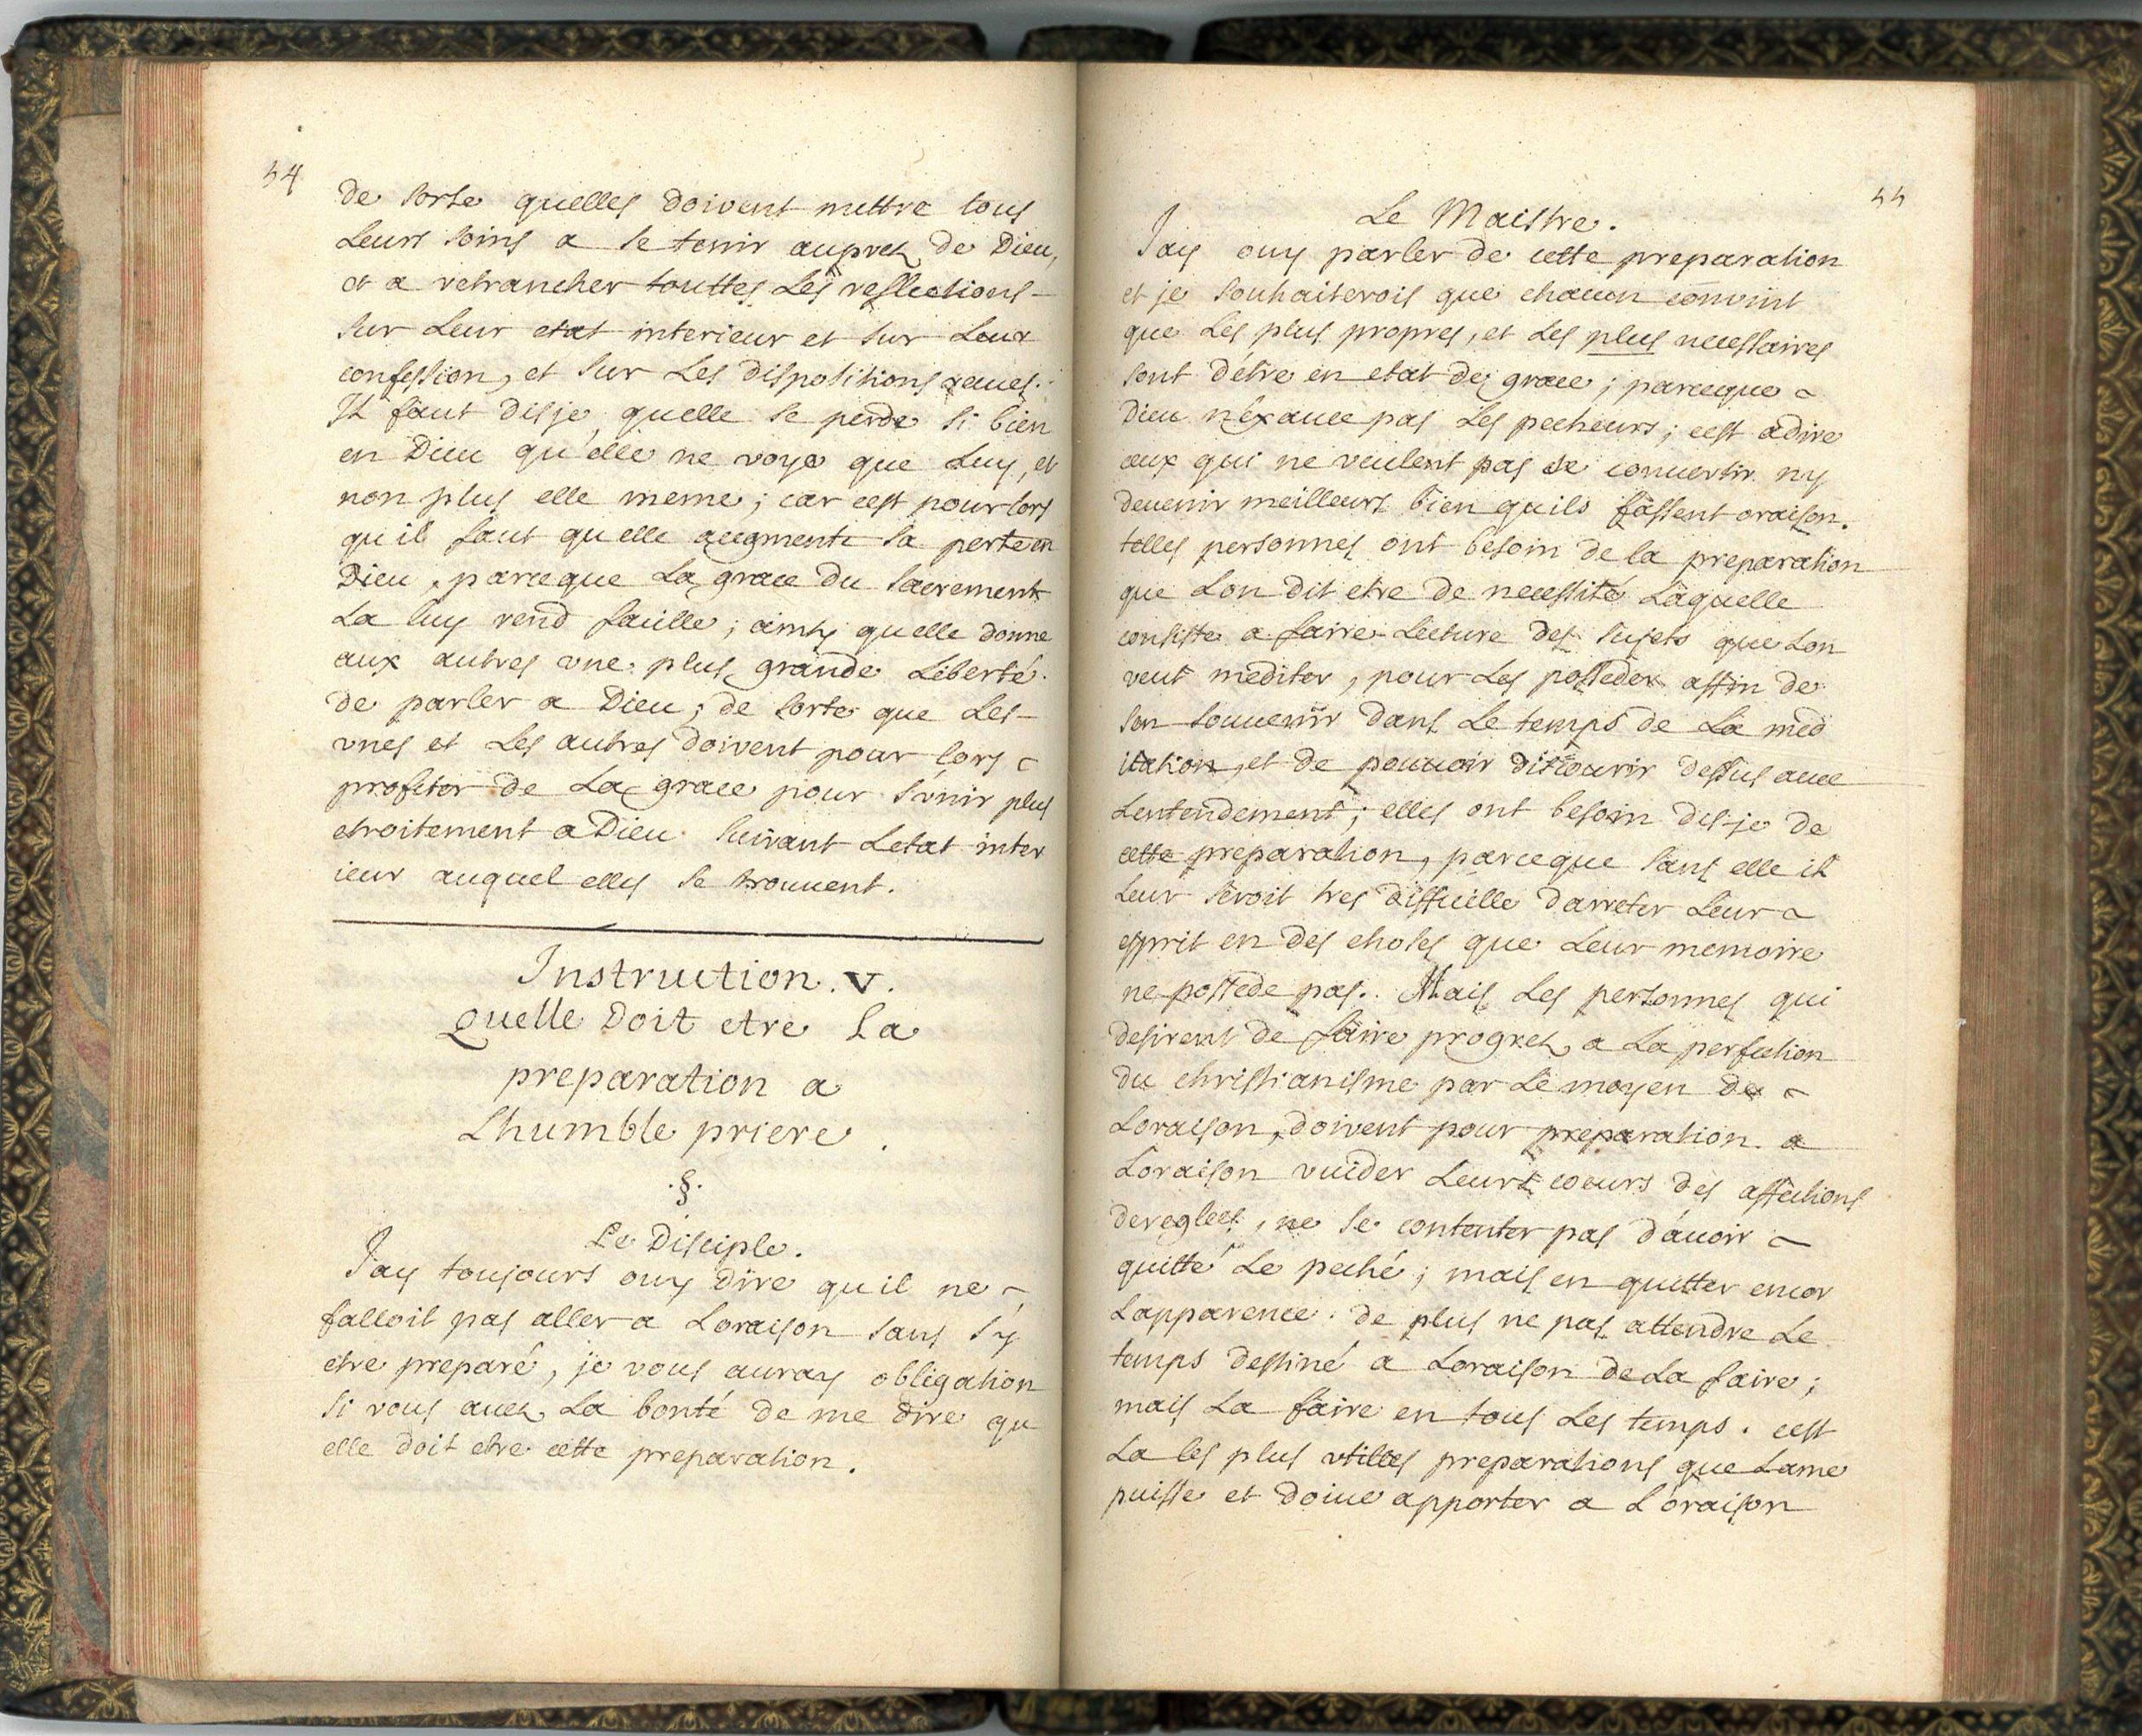 54
de sorte quelles doivent mettre tous
Leurs soins a se tenir aupres de Dieu,
et a retrancher touttes Les reflections
sur Leur etat interieur et sur Leur
confession, et sur Les dispositions
Il faut disje quelle se perde si bien
en Dieu qu'elle ne voye que Luy, et
non plus elle meme; car cest pour lors
quil faut quelle augmente sa perte en
Dieu, parceque La grace du sacrement
La luy rend facille; ainsy quelle donne
aux autres une plus grande Liberté
de parler a Dieu; de sorte que Les
unes et Les autres doivent pour lors
profiter de La grace pour s'unir plus
etroitement a Dieu suivant Letat inter
ieur auquel elles se trouvent.
Instruction. V.
Quelle Doit etre la
preparation a
Lhumble priere.
.§.
Le Disciple.
Jay toujours ouy dire quil ne
falloit pas aller a Loraison sans s'y
etre preparé, je vous auray obligation
si vous avez La bonté de me dire qu
elle doit etre cette preparation.
55
Le Maistre.
Jay ouy parler de cette preparation
et je souhaiterois que chacun convint
que Les plus propres, et Les plus necessaires
sont d'etre en etat de grace; parceque
Dieu n'exauce pas Les pecheurs; cest adire
ceux qui ne veulent pas se convertir ny
devenir meilleurs bien quils fassent oraison.
telles personnes ont besoin de la preparation
que Lon dit etre de necessité Laquelle
consiste a faire Lecture des sujets que Lon
veut mediter, pour Les posseder affin de
sen souvenir dans Le temps de La med
itation, et de pouvoir discourir dessus avec
Lentendement; elles ont besoin dis-je de
cette preparation, parceque sans elle il
Leur seroit tres difficille darreter Leur
esprit en des choses que Leur memoire
ne possede pas. Mais Les personnes qui
desirent de faire progrez a La perfection
du christianisme par Le moyen de
Loraison, doivent pour preparation a
Loraison vuider Leurs coeurs des affections
dereglees, ne se contenter pas d'avoir
quitté Le peché; mais en quitter encor
Lapparence. de plus ne pas attendre Le
temps destiné a Loraison de La faire;
mais La faire en tous Les temps. cest
La les plus utilles preparations que Lame
puisse et doive apporter a L'oraison